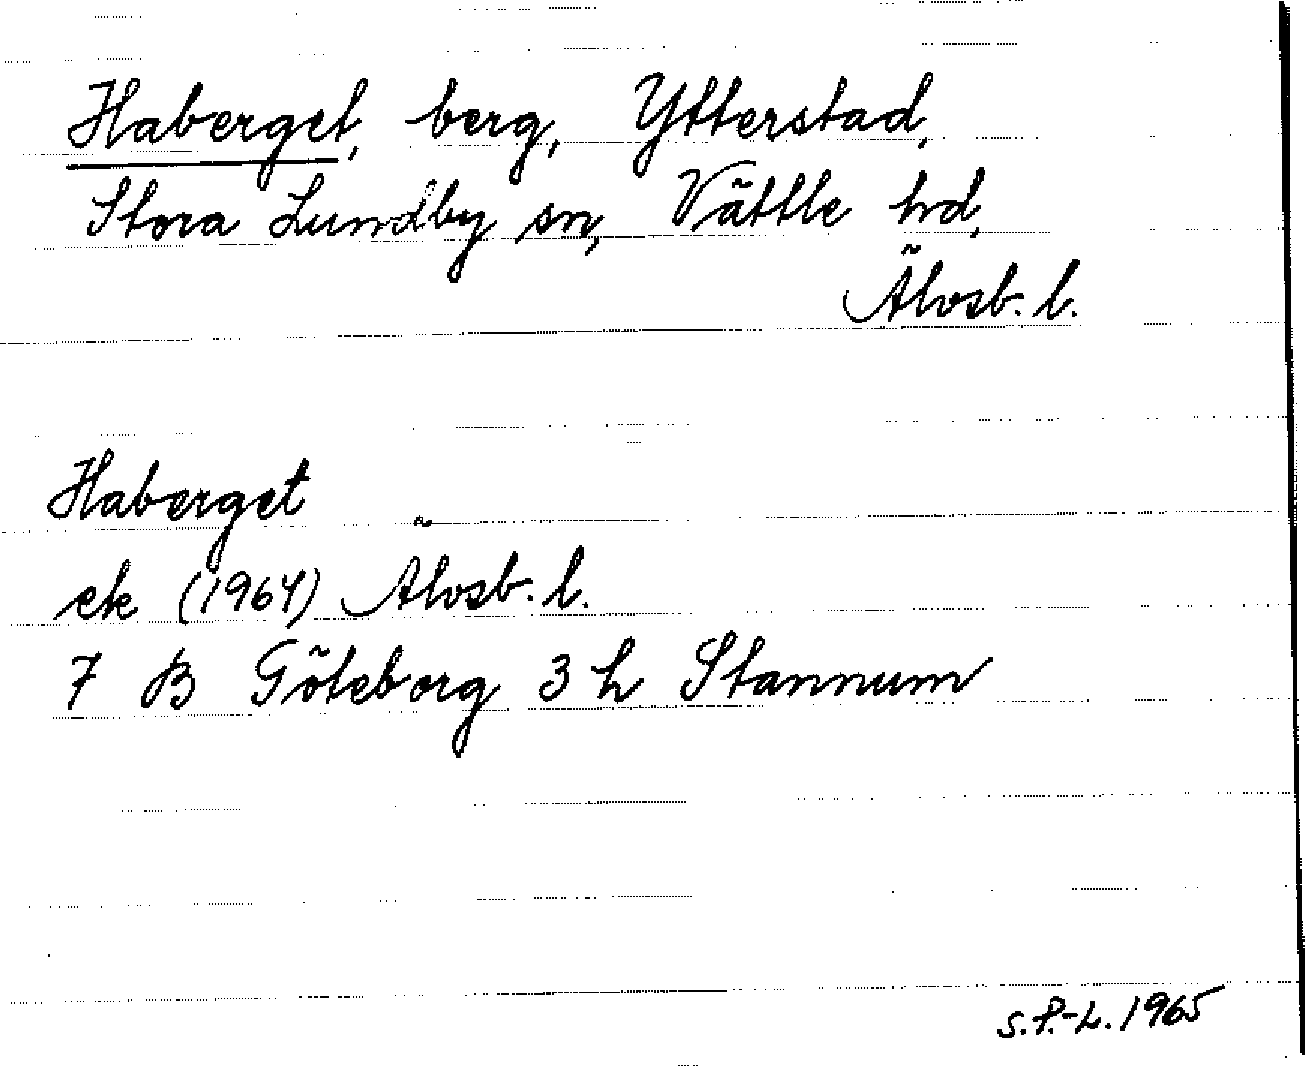 Haberget, berg, Ytterstad,
Stora Lundby sn, Vättle hd,
Älvsb. l.
Haberget
ek (1964) Älvsb. l.
7 B Göteborg 3 h Stannum
S.P.-L. 1965